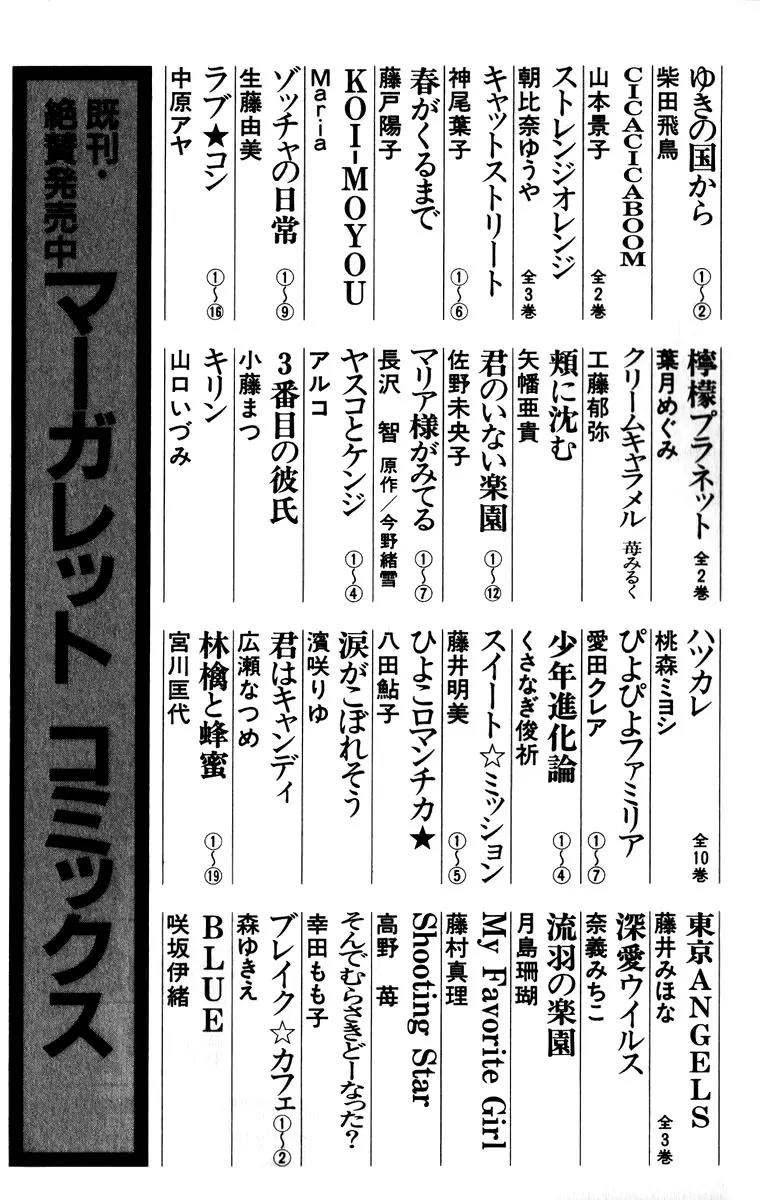 ゆきの国から ①〜②
柴田飛鳥
CICACICABOOM
山本景子 全2巻
ストレンジオレンジ
朝比奈ゆうや 全3巻
キャットストリート
神尾葉子 ①〜⑥
春がくるまで
藤戸陽子
KOI-MOYOU
Maria
ゾッチャの日常 ①〜⑨
生藤由美
ラブ★コン ①〜⑯
中原アヤ
檸檬プラネット 全2巻
葉月めぐみ
クリームキャラメル 苺みるく
工藤郁弥
頬に沈む
矢幡亜貴
君のいない楽園 ①〜⑫
佐野未央子
マリア様がみてる ①〜⑦
長沢 智 原作/今野緒雪
ヤスコとケンジ ①〜④
アルコ
3番目の彼氏
小藤まつ
キリン
山口いづみ
ハツカレ 全10巻
桃森ミヨシ
ぴよぴよファミリア
愛田クレア ①〜⑦
少年進化論 ①〜④
くさなぎ俊祈
スイート☆ミッション
藤井明美 ①〜⑤
ひよこロマンチカ★
八田鮎子
涙がこぼれそう
濱咲りゆ
君はキャンディ
広瀬なつめ
林檎と蜂蜜 ①〜⑲
宮川匡代
東京ANGELS
藤井みほな 全3巻
深愛ウイルス
奈義みちこ
流羽の楽園
月島珊瑚
My Favorite Girl
藤村真理
Shooting Star
高野 苺
そんでむらさきどーなった?
幸田もも子
ブレイク☆カフェ ①〜②
森ゆきえ
BLUE
咲坂伊緒
既刊・
絶賛発売中
マーガレット コミックス